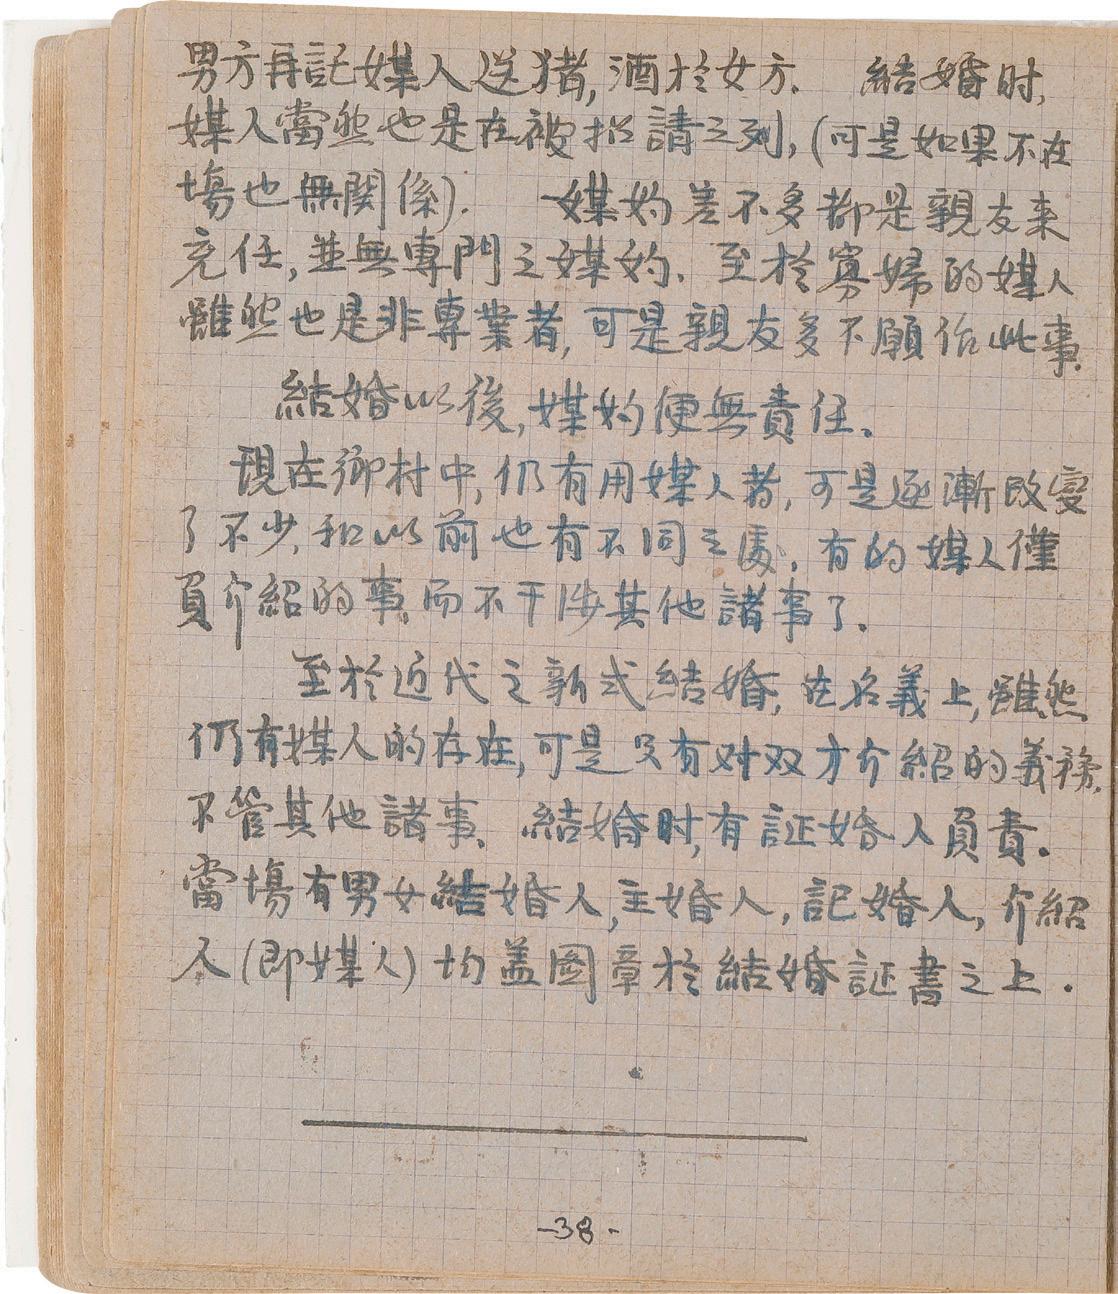 男方再託媒人送猪,酒於女方. 結婚时,
媒人當然也是在被招請之列,(可是如果不在
場也無關係). 媒妁差不多都是親友来
充任,並無專門之媒妁. 至於寡婦的媒人
雖然也是非專業者,可是親友多不願作此事.
結婚以後,媒妁便無責任.
現在鄉村中,仍有用媒人者,可是逐漸改變
了不少,和以前也有不同之處. 有的媒人僅
負介紹的事,而不干涉其他諸事了.
至於近代之新式結婚,在名義上,雖然
仍有媒人的存在,可是只有对双方介紹的義務.
不管其他諸事. 結婚时,有証婚人負責.
當場有男女結婚人,主婚人,記婚人,介紹
人(即媒人)均盖圖章於結婚証書之上.
-38-